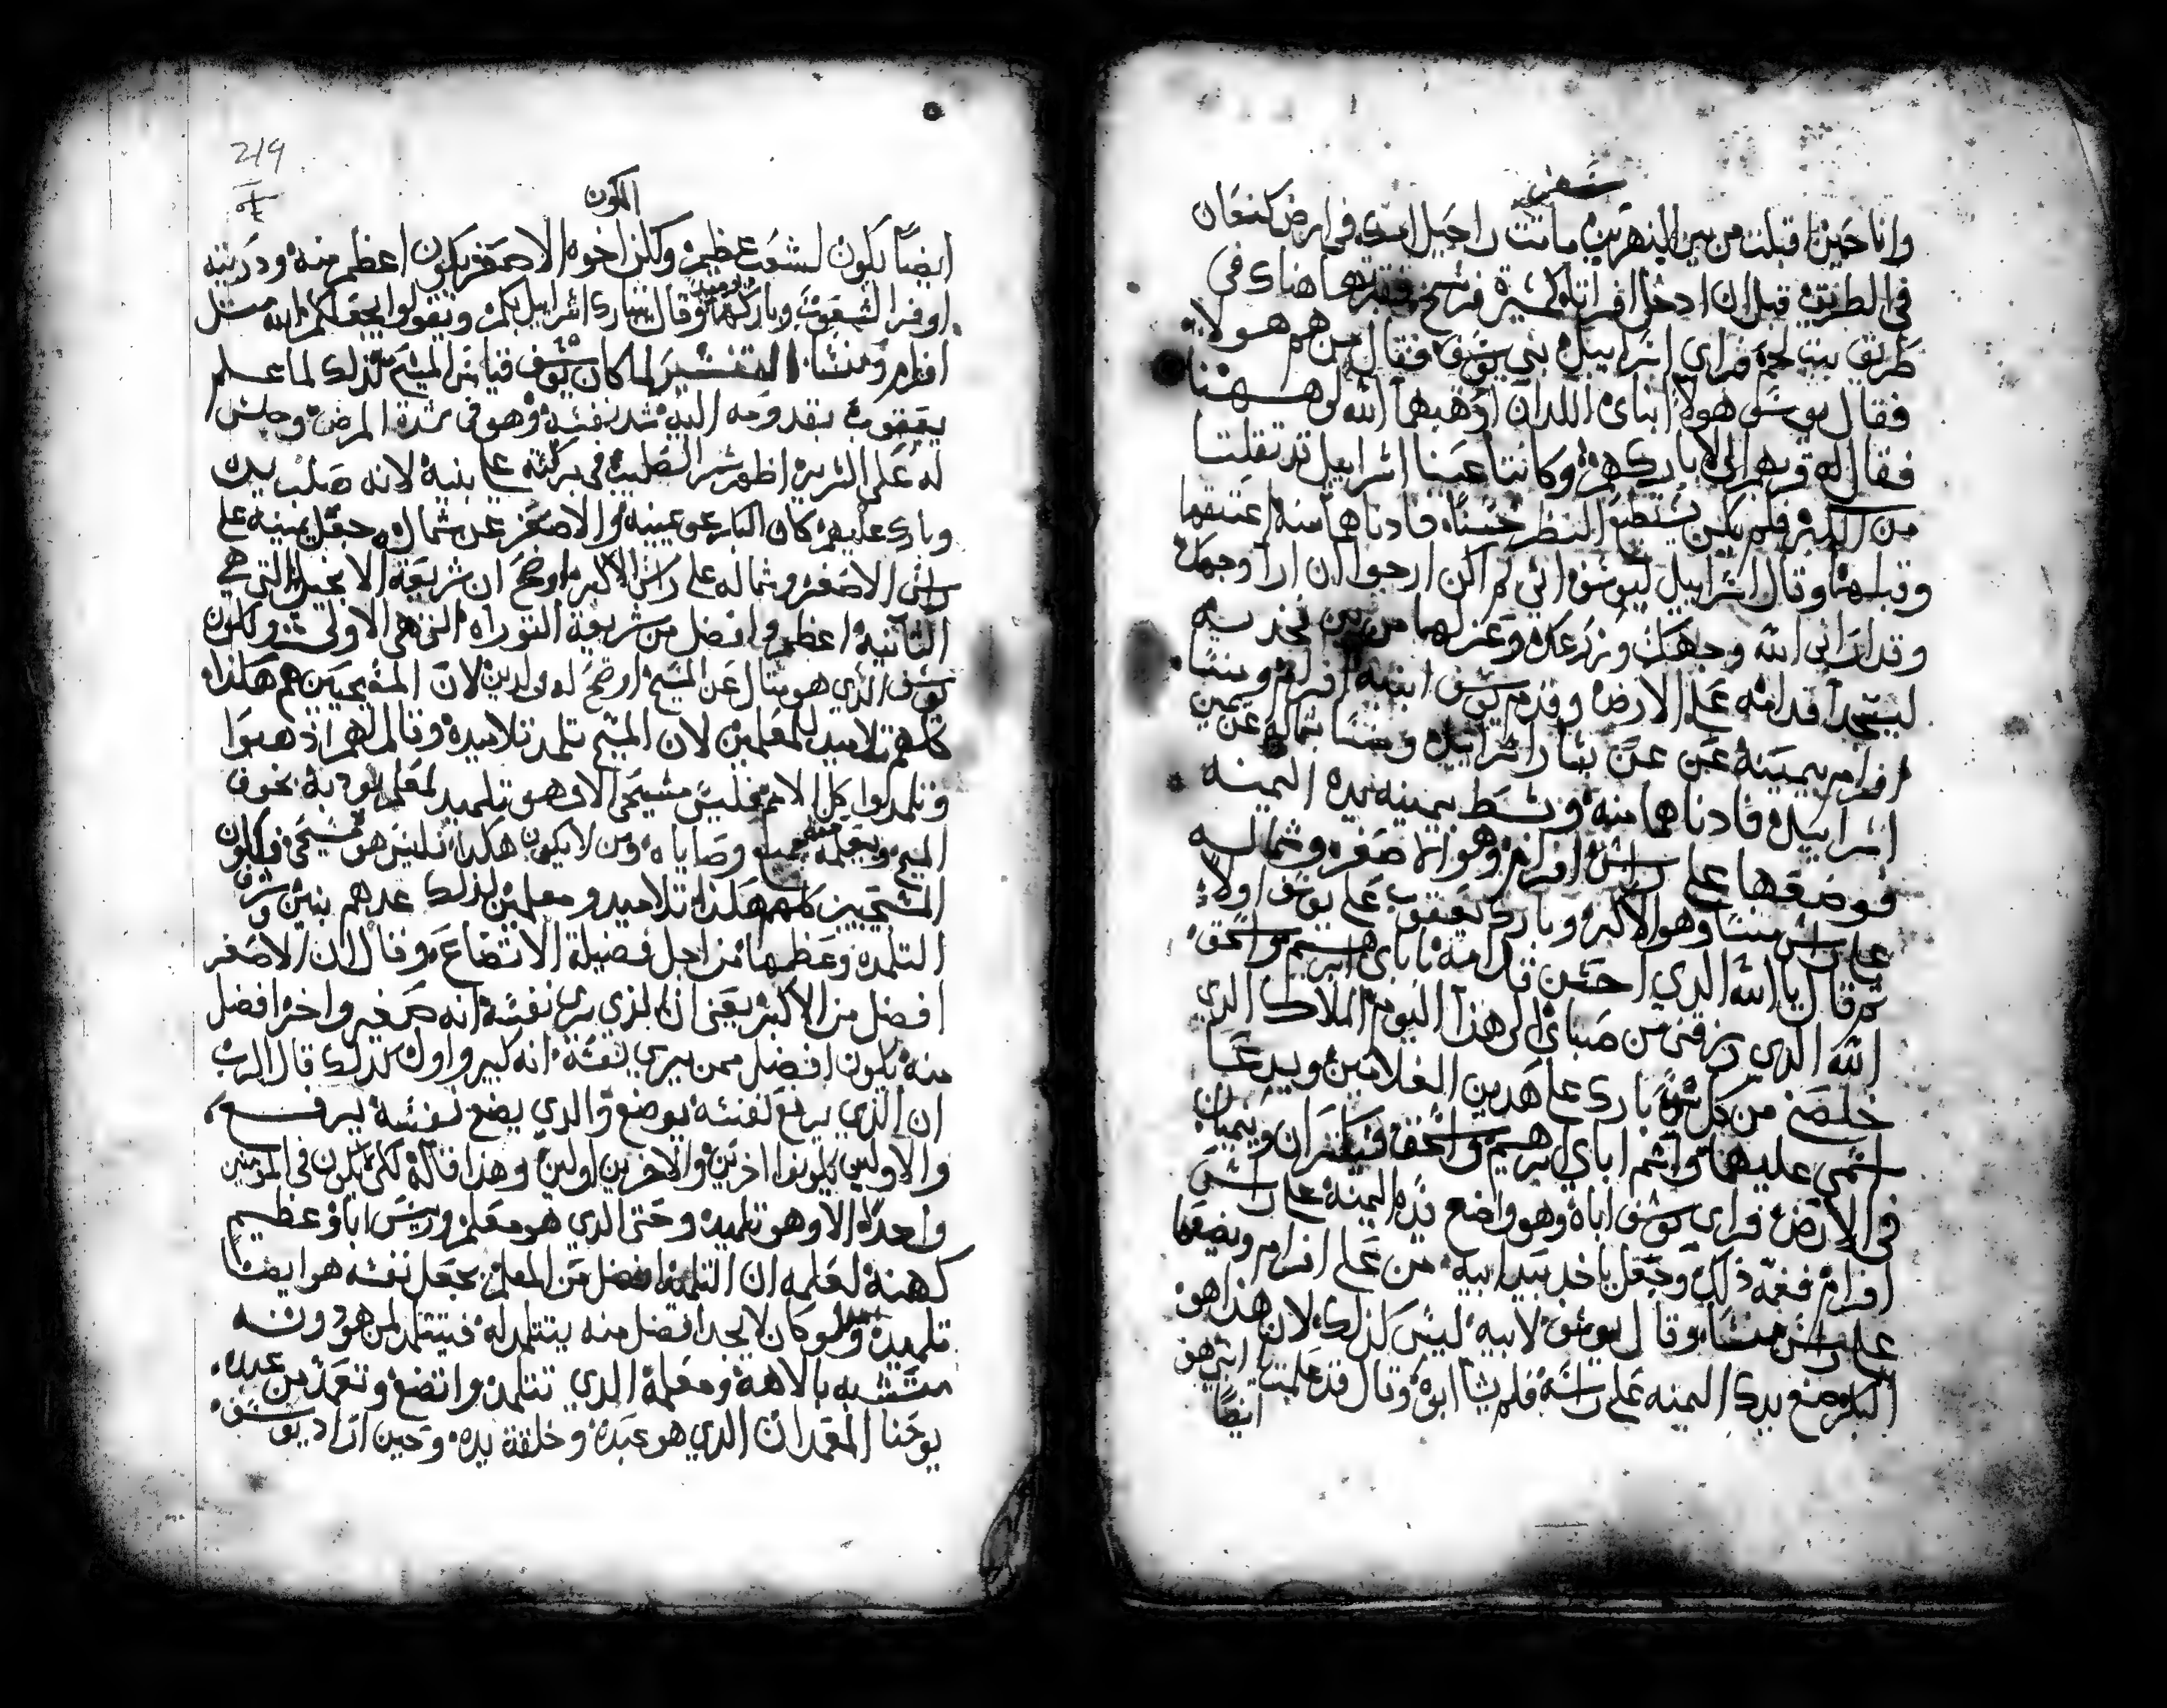 سفر
وانا حين اقبلت من بين النهرين ماتت راحيل امك في ارض كنعان
في الطريق قبل ان ادخل افراتاه لمسيرة فرسخ فقبرتها هناك في
طريق بيت لحم فراى اسراييل بني يوسف فقال من هم هولاء
فقال يوسف هولا ابناي اللدان اوهبهما الله لي ههنا
فقال له قربهم الي لاباركهم وكانتا عينا اسراييل قد ثقلتا
من الكبر فلم يكن يستطيع النظر حسنا فادناهما منه اعتنقهما
وقبلهما وقال اسراييل ليوسف اني لم اكن ارجوا ان ارا وجهك
وقد اراني الله وجهك وزرعك وعزلهما من بين فخديه
ليسجدا قدامه على الارض وقدم يوسف ابنيه افرام ومنسا
افرام بيمينه عن يسار اسراييل ومنسا بشماله عن يمين
اسراييل فادناهما منه وبسط يمينه يده اليمنه
فوضعها على راس افرام وهو الاصغر وشماله
على راس منسا وهو الاكبر وبارك يعقوب على يوسف اولا
ثم قال يا الله الدي احسن قدامه اباي ابرهيم واسحق
الله الدي رزقني من صباي الى هذا اليوم الملاك الدي
خلصني من كل بارك على هدين الغلامين ويدعا
اسمي عليهما واسم اباي ابرهيم واسحق فيكثران وينميان
في الارض فراى يوسف اباه وهو واضع يده اليمنه على راس
افرام فغمه ذلك وجعل ياخد بيد ابيه من على افرام ويضعها
على راس منسا وقال يوسف لابيه ليس كذلك لان هذا هو
البكر وضع يدك اليمنه على راسه فلم يشا ابوه وقال قد علمت ابني هو
ايضا
219
الكون
ايضا يكون لشعب عظيم ولكن اخوه الاصغر يكون اعظم منه ودريته
اوفر الشعوب وباركهما وقال يتبارك اسراييل بكم ويقولوا يجعلكم الله مثل
افرام ومنسا التفسير لما كان يوسف قياس المسيح كذلك لما علم
يعقوب بقدومه اليه شد نفسه وهو في شدة المرض وجلس
له على السرير اظهر سر الصليب في بركته على بنيه لانه صلب يديه
وبارك عليهم كان الكبار عن يمينه والاصغر عن شماله جعل يمينه على
راس الاصغر وشماله على راس الاكبر اوضح ان شريعة الانجيل التي هي
الثانيه اعظم وافضل من شريعة التوراه التي هي الاولى ولكون
يوسف الذي هو مثال عن المسيح اوضح له ولدين لان المسيحيين هم هكذا
كلهم تلاميد للمعلمين لان المسيح تلمد تلاميده وقال لهم اذهبوا
وتلمدوا كل الامم فليس مسيحي الا وهو تلميد لمعلم يودبه بخوف
المسيح ويعلمه جميع وصاياه ومن لا يكون هكذا فليس هو مسيحي فيكون
المسيحيين كلهم هكذا تلاميد ومعلمين لذلك عدهم بنين شرف
التلمده وعظمها من اجل فضيلة الاتضاع وقال ان الاصغر
افضل من الاكبر يعني ان الذي يرى نفسه انه صغير واخر افضل
منه يكون افضل ممن يرى نفسه انه كبير واول كذلك قال الرب
ان الذي يرفع نفسه يوضع والدي يضع نفسه يرفع
والاولين يكونوا اخرين والاخرين اولين وهذا قاله لكي يكون في المومنين
واحد الا وهو تلميد وحتى الدي هو معلم وريس اباو عظيم
كهنه لعلمه ان التلميذ افضل من المعلم يجعل نفسه هو ايضا
تلميد ولو كان لا يجد افضل منه يتتلمد له فيتتلمد لمن هو دونه
متشبه بالاهه ومعلمه الدي تتلمد واتضع وتعمد من عبده
يوحنا المعمدان الدي هو عبده وخلقة يده وحين اراد يوسف